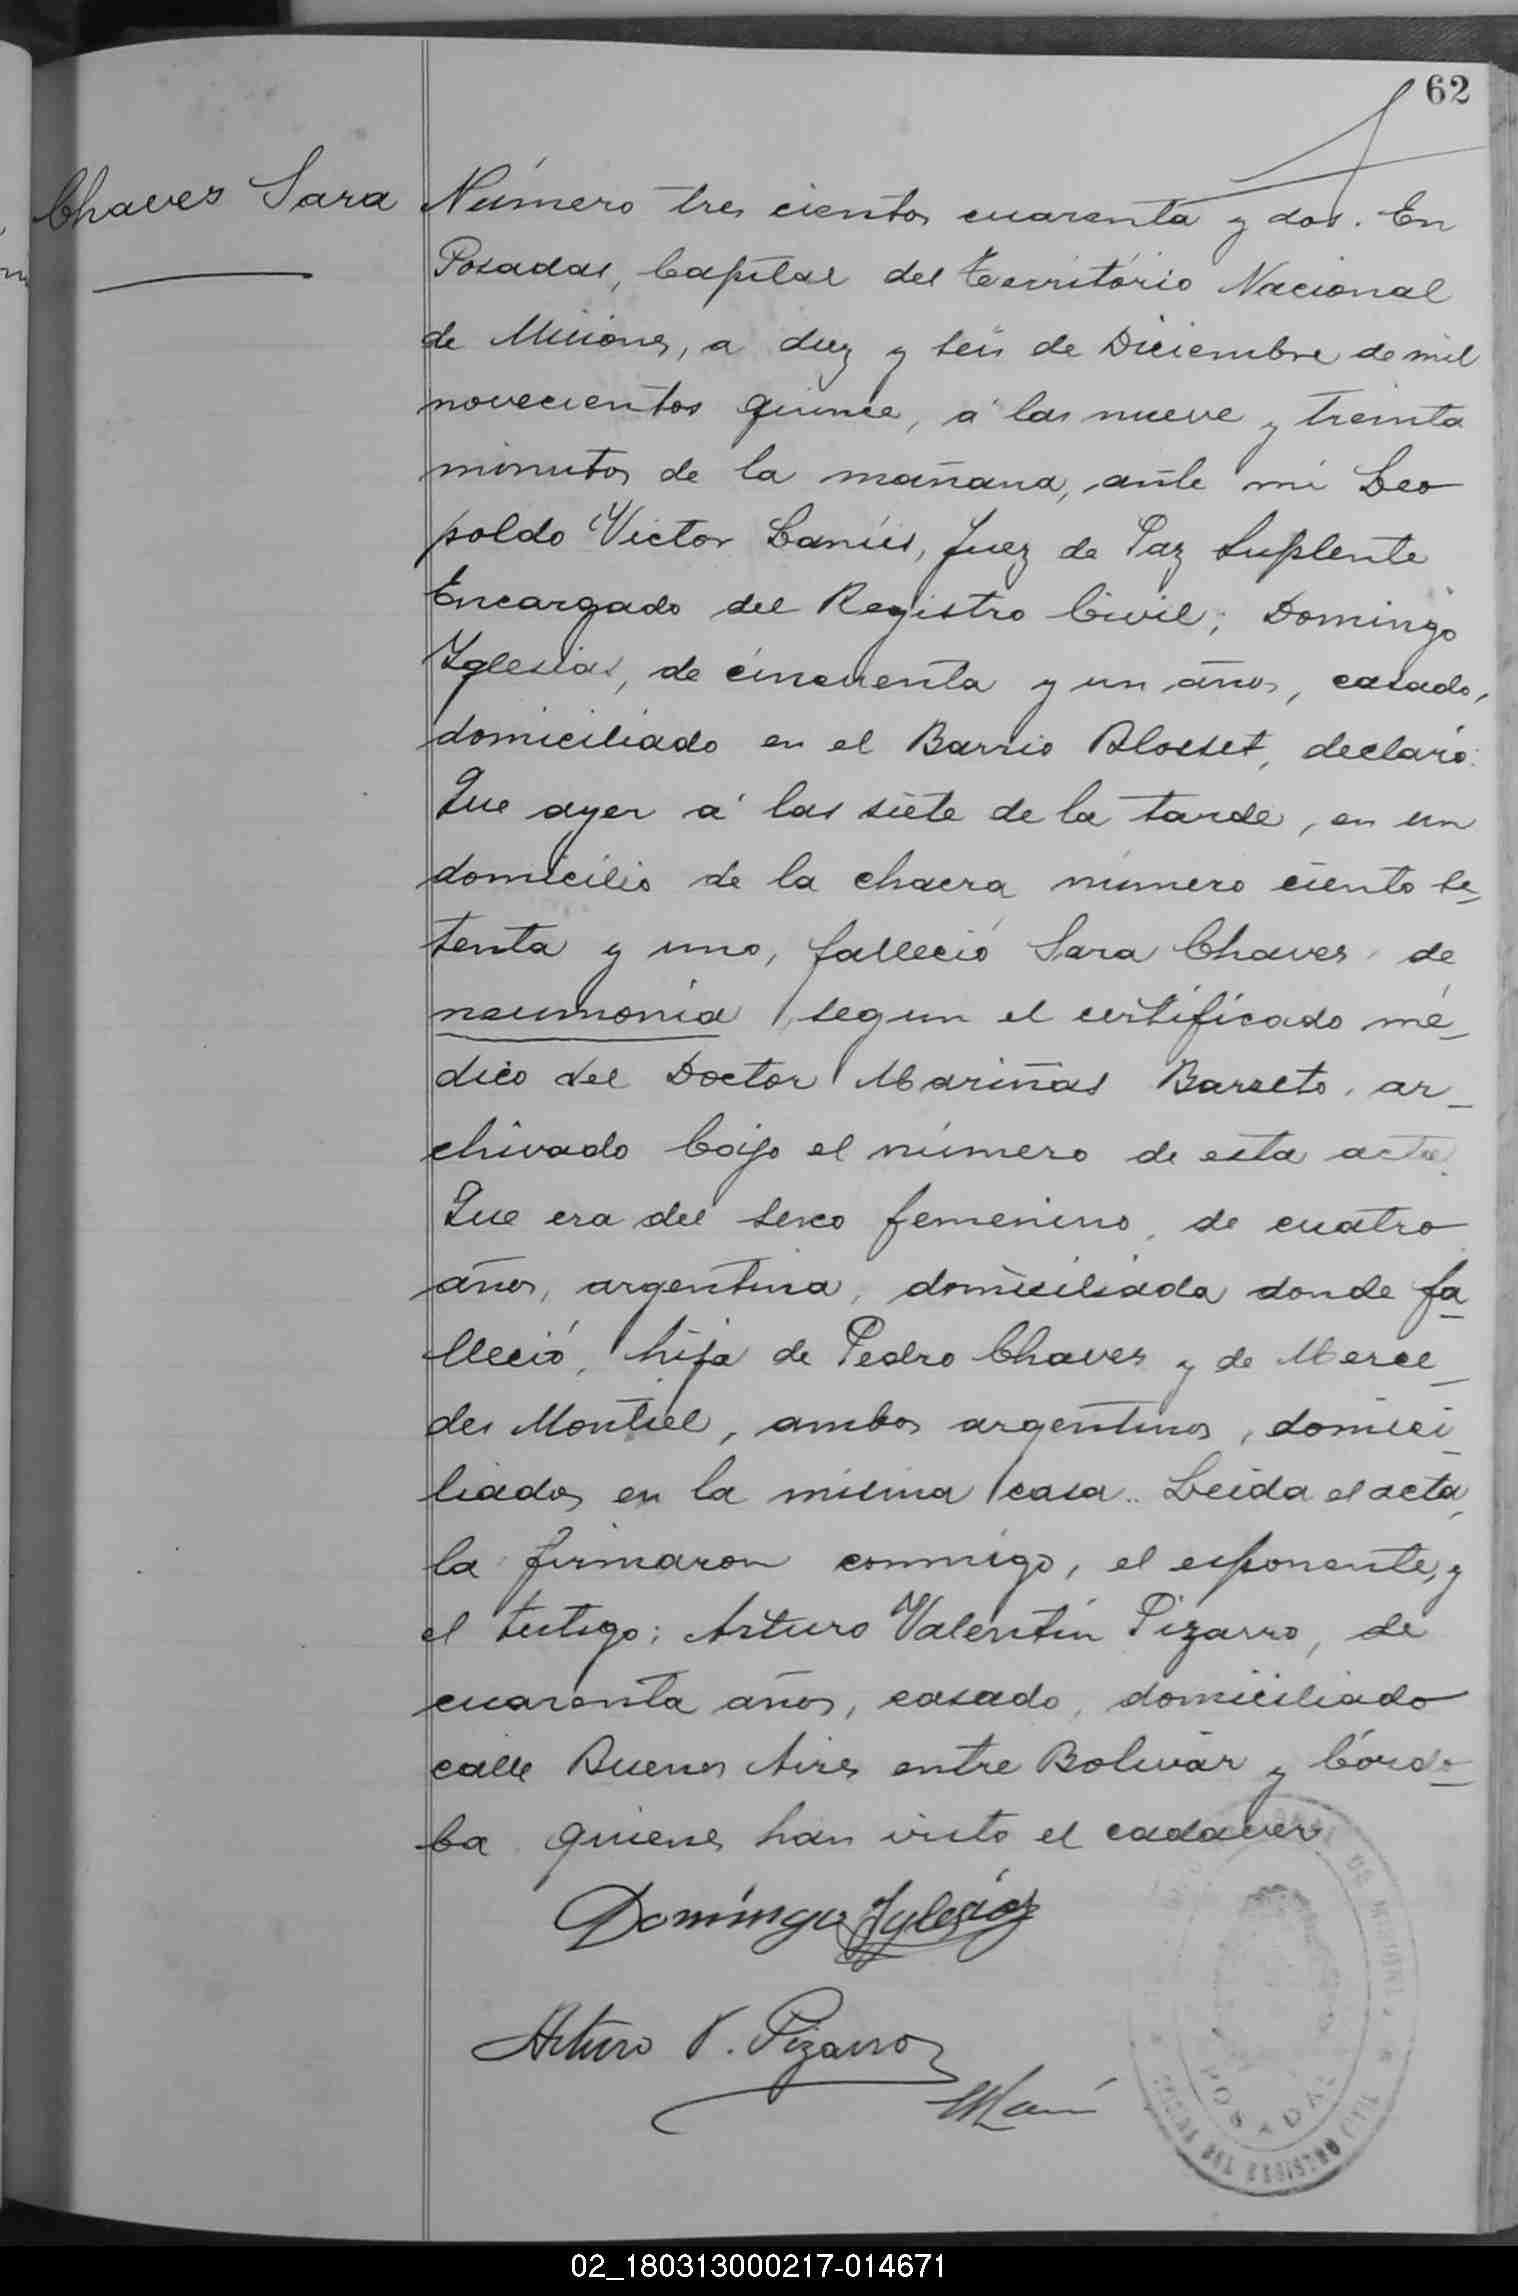 62
Chaves Sara
Número tres cientos cuarenta y dos. En
Posadas, Capital del Territorio Nacional
de Misiones, a diez y seis de Diciembre de mil
novecientos quince, á las nueve y treinta
minutos de la mañana, ante mi Leo
poldo Victor Lanús, Juez de Paz Suplente
Encargado del Registro Civil; Domingo
Yglesias, de cincuenta y un años, casado,
domiciliado en el Barrio Blosset, declaró:
Que ayer á las siete de la tarde, en un
domicilio de la chacra número ciento se_
tenta y uno, falleció Sara Chaves de
neumonia segun el certificado mé_
dico del Doctor Mariñas Barreto, ar_
chivado bajo el número de esta acta.
Que era del sexo femenino, de cuatro
años, argentina, domiciliada donde fa_
lleció, hija de Pedro Chaves y de Merce_
des Montiel, ambos argentinos, domici_
liados en la misma casa. Leida el acta,
la firmaron conmigo, el exponente, y
el testigo: Arturo Valentín Pizarro, de
cuarenta años, casado, domiciliado
calle Buenos Aires entre Bolivar y Córdo_
ba quienes han visto el cadaver
Domingo Yglesias
Arturo V. Pizarro
POSADAS
02_180313000217-014671